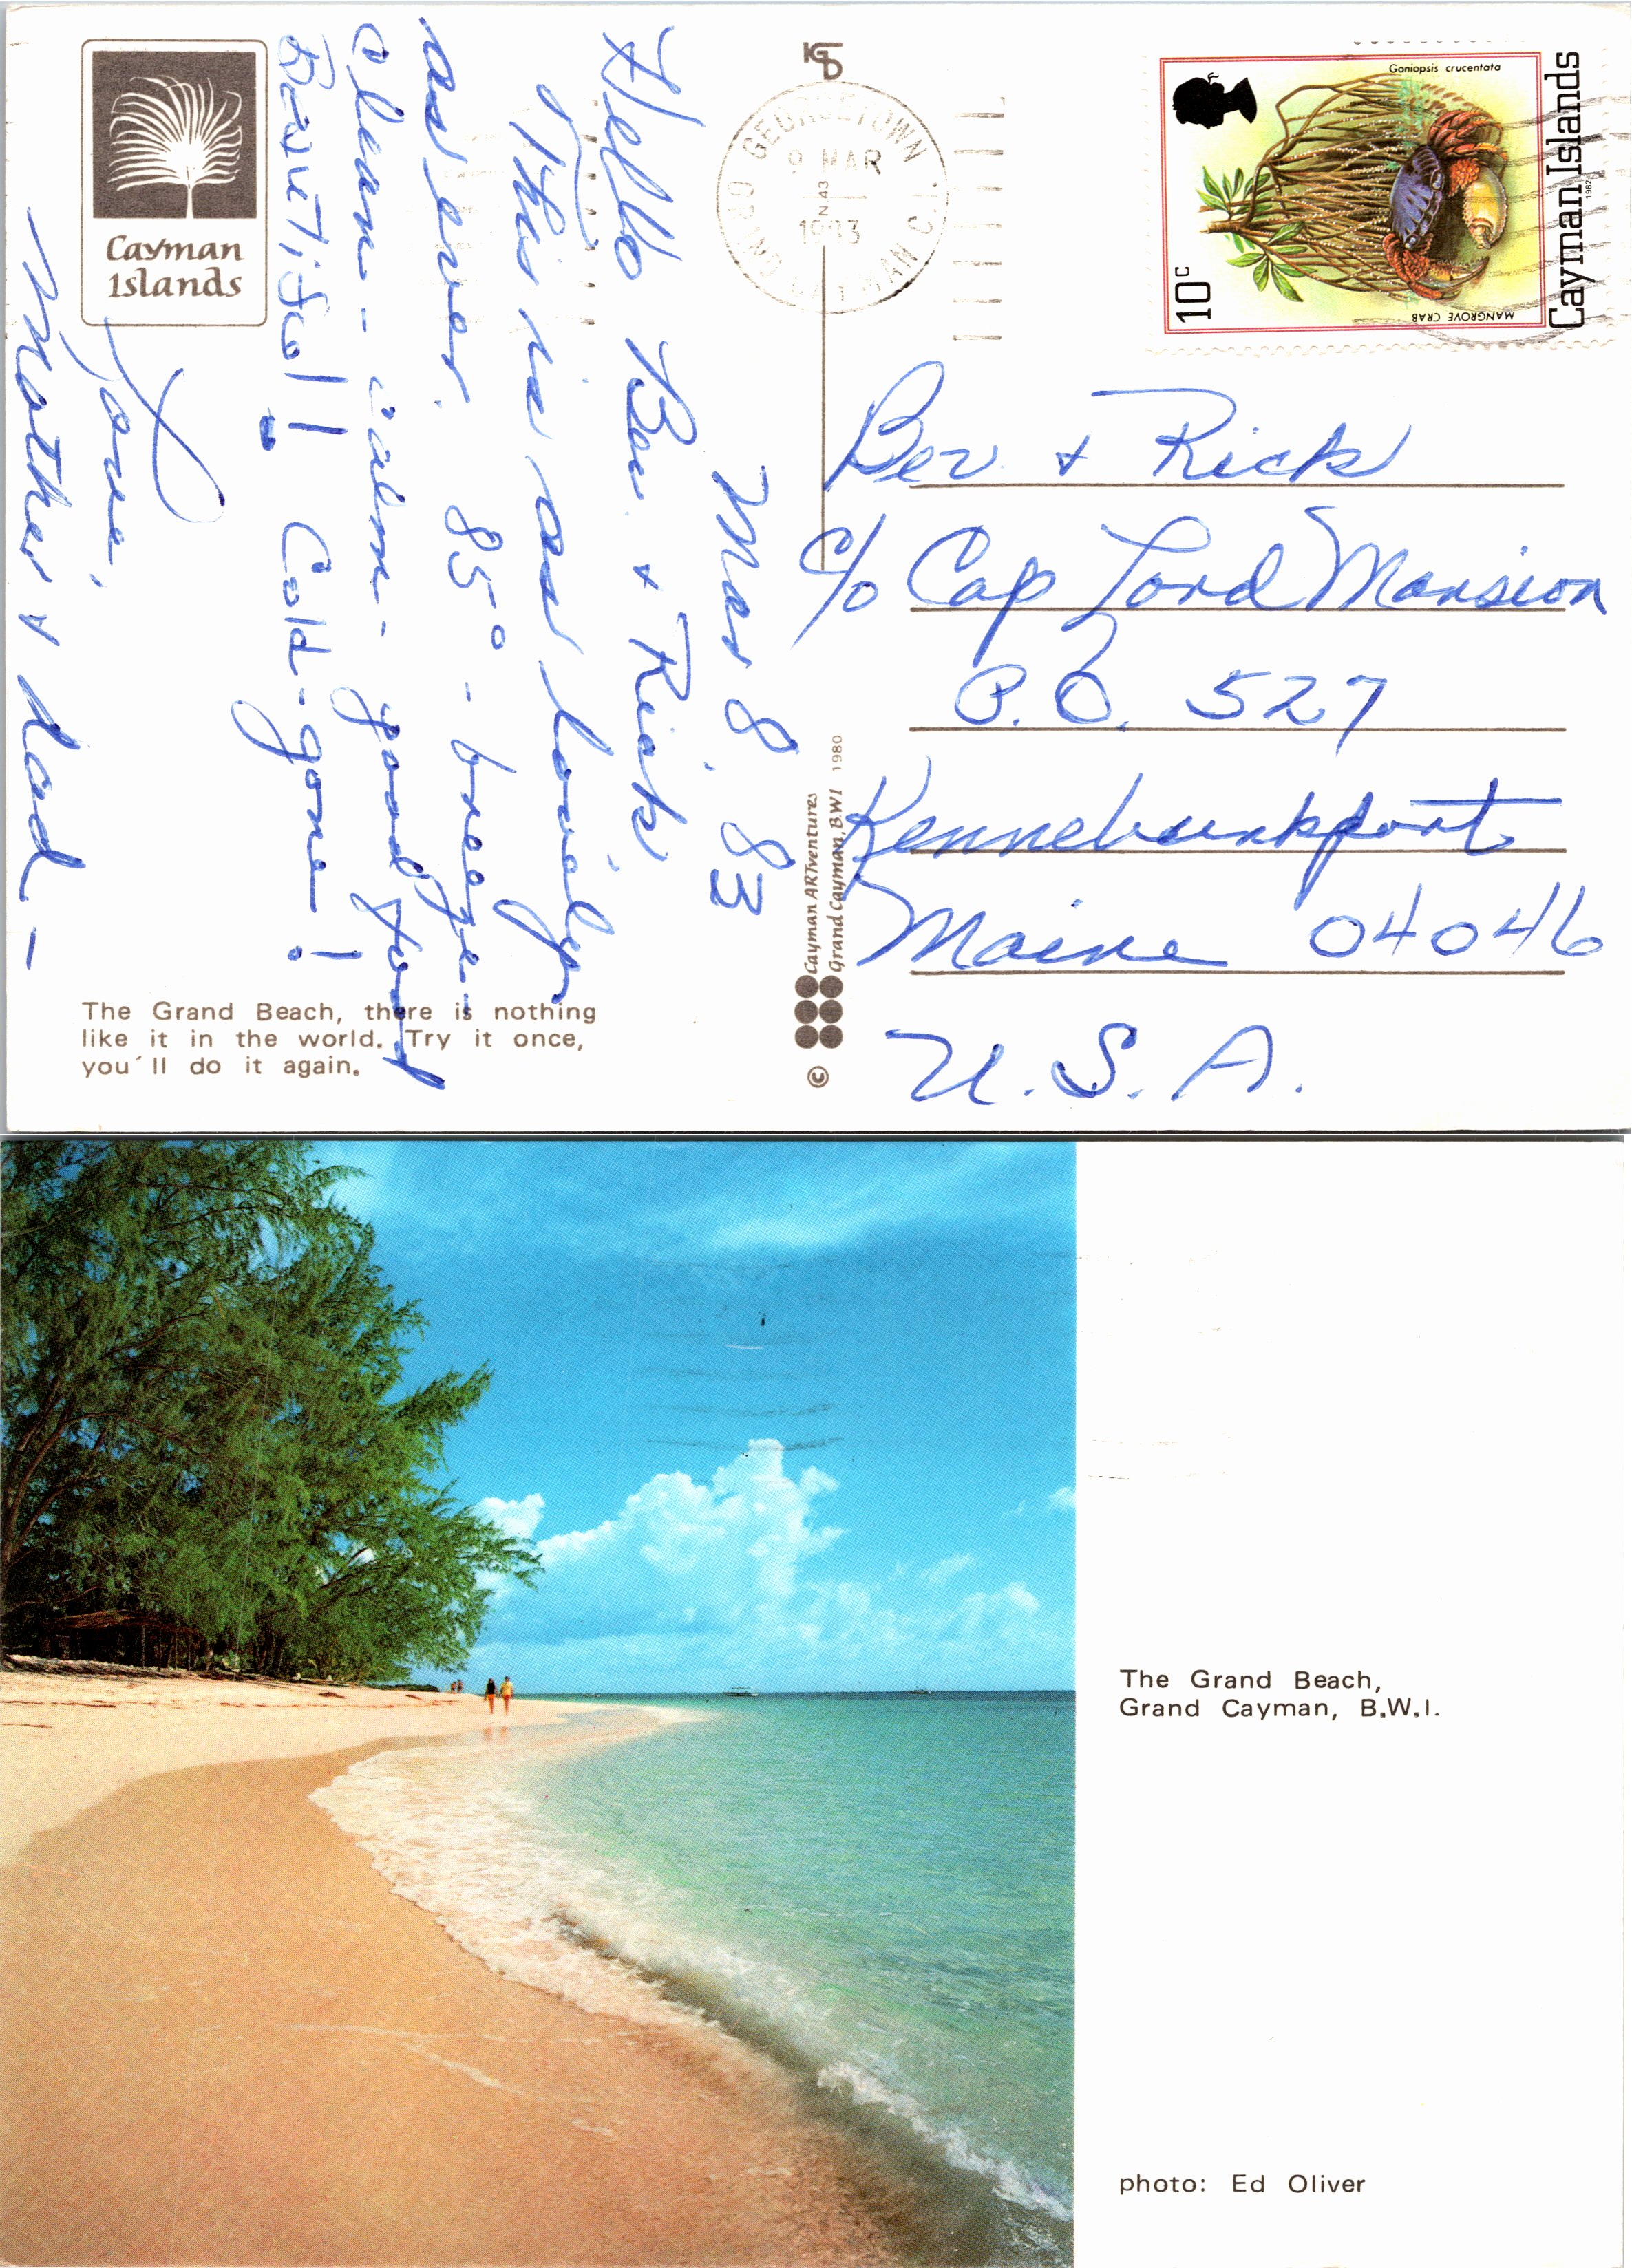 Cayman
Islands
Mar 8, 83
Hello Bev. & Rick
This is as lovely
as ever. 85° - breeze -
clean - calm - good food
Beautiful! Cold - gone!
Love,
Mother & Dad -
The Grand Beach, there is nothing
like it in the world. Try it once,
you'll do it again.
KGD
GEORGETOWN
9 MAR
N.43
1983
GRAND CAYMAN C.I.
Goniopsis crucentata
10c
MANGROVE CRAB
Cayman Islands
1982
Bev. & Rick
c/o Cap Lord Mansion
P.O. 527
Kennebunkport
Maine 04046
U.S.A.
Cayman ARTventures
Grand Cayman, BWI 1980
©
The Grand Beach,
Grand Cayman, B.W.I.
photo: Ed Oliver